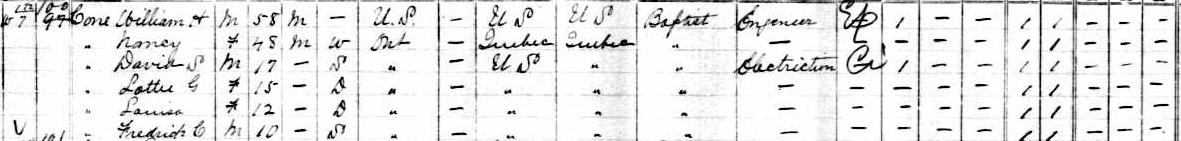 W 7 97 100 Cone William H M 58 M - U.S. - U S U S Baptist Engineer 1 - - 1 1 - - -
" Nancy F 48 M W Ont - Quebec Quebec " - - - - - 1 1 - - -
" David S M 17 - S " - U S " " Electriction 1 - - 1 1 - - -
" Lottie G F 15 - D " - " " " - - - - - 1 1 - - -
" Louisa F 12 - D " - " " " - - - - - 1 1 - - -
V 101 " Fredrick C M 10 - S " - " " " - - - - - 1 1 - - -